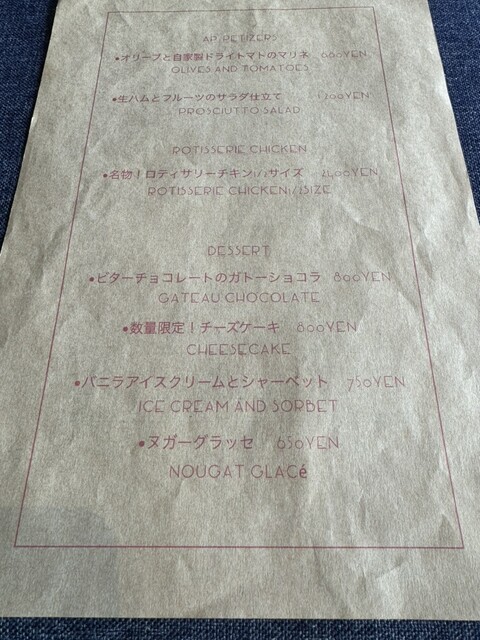 APPETIZERS
●オリーブと自家製ドライトマトのマリネ 680YEN
OLIVES AND TOMATOES
●生ハムとフルーツのサラダ仕立て 1,700YEN
PROSCIUTTO SALAD
ROTISSERIE CHICKEN
●名物！ロティサリーチキン1/2サイズ 2,100YEN
ROTISSERIE CHICKEN1/2SIZE
DESSERT
●ビターチョコレートのガトーショコラ 800YEN
GATEAU CHOCOLATE
●数量限定！チーズケーキ 800YEN
CHEESECAKE
●バニラアイスクリームとシャーベット 750YEN
ICE CREAM AND SORBET
●ヌガーグラッセ 650YEN
NOUGAT GLACé